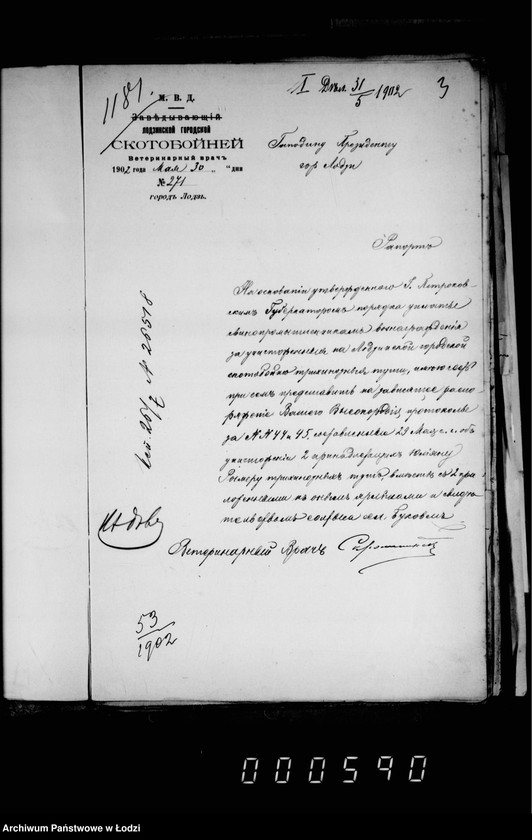 1181.
I Дѣл. 31/5 1902
3
М. В. Д.
Завѣдывающій
ЛОДЗИНСКОЙ ГОРОДСКОЙ
СКОТОБОЙНЕЙ
Ветеринарный врачъ
1902 года Мая 30 „ “ дня
№ 271
городъ Лодзь.
Господину Президенту
гор. Лодзи
Рапортъ
На основаніи утвержденнаго Г. Петроков-
скимъ Губернаторомъ порядка уплаты
свинопромышленникамъ вознагражденія
за уничтоженныя на Лодзинской городской
скотобойнѣ трихинозныя туши, имѣю честь
при семъ представить на зависящее распо-
ряженіе Вашего Высокородія протоколы
за №№ 44 и 45, составленные 29 Мая с. г. объ
уничтоженіи 2 принадлежащихъ Юліану
трихинозныхъ тушъ, вмѣстѣ съ 2 при
ложенными къ онымъ ярлыками и свидѣ
тельствомъ
Ветеринарный Врачъ
№ 26518
53/1902
000590
Archiwum Państwowe w Łodzi